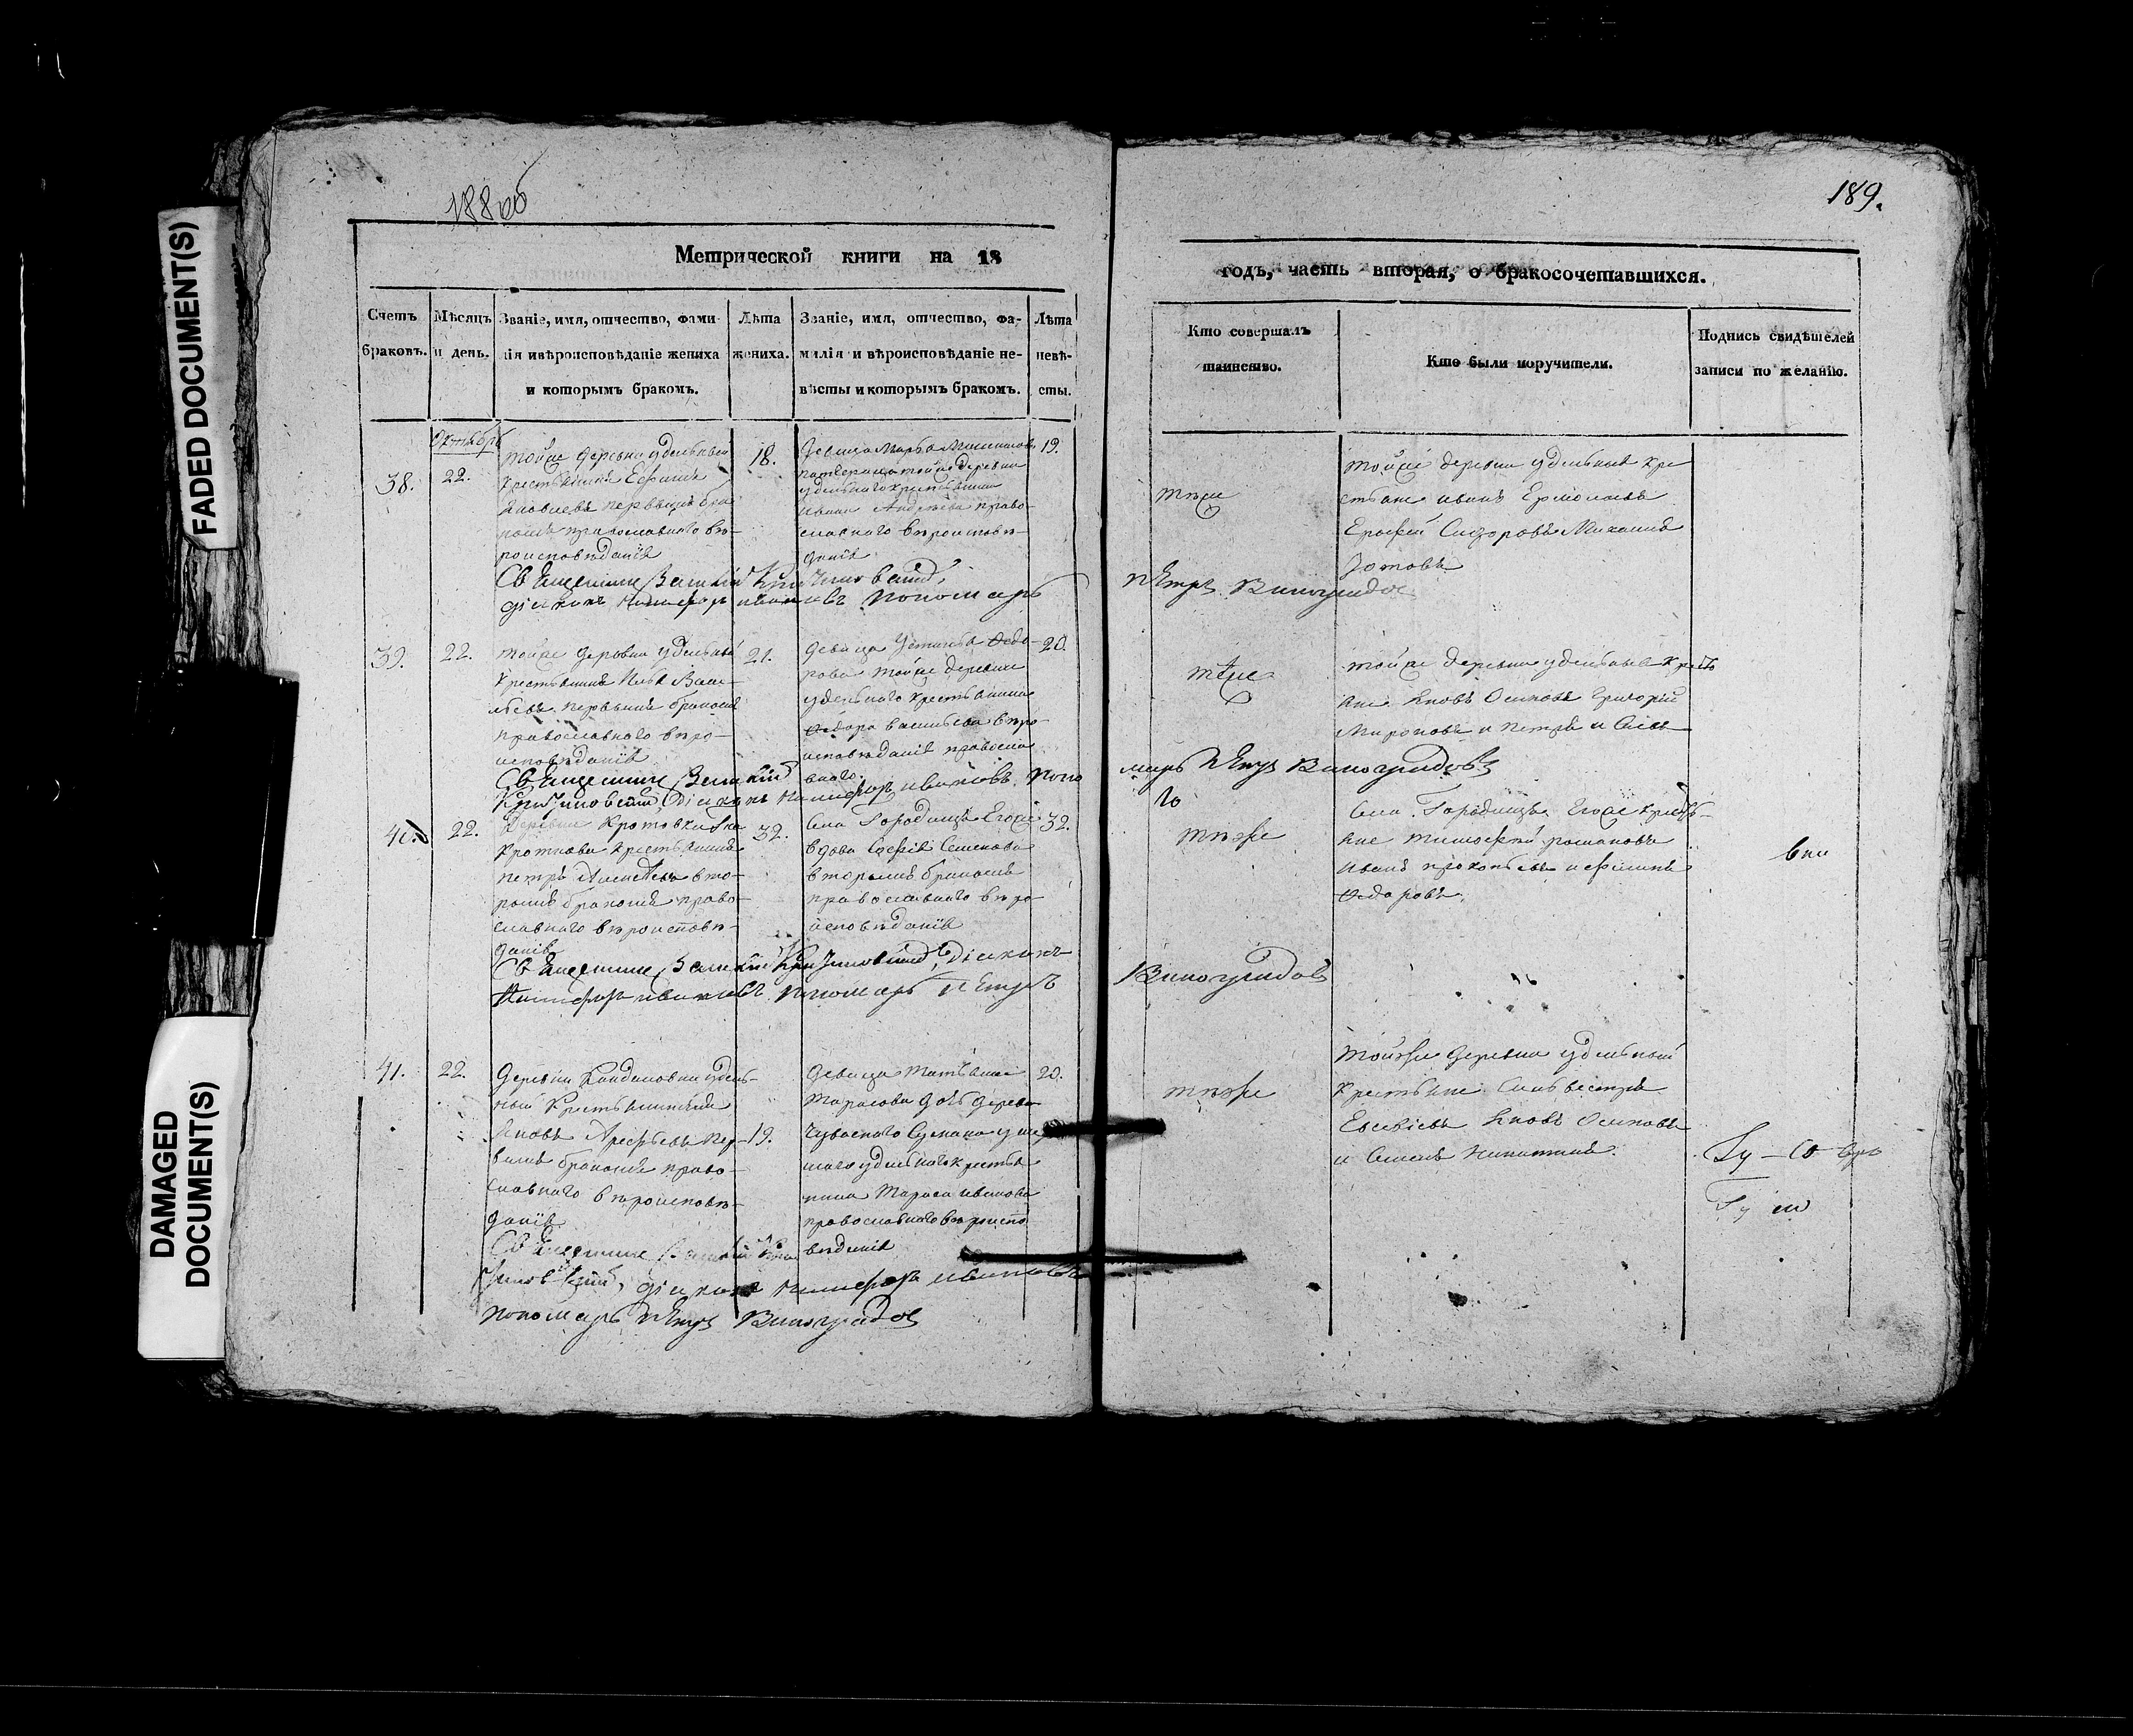 FADED DOCUMENT(S)
DAMAGED
DOCUMENT(S)
188 об
189.
Метрической книги на 18
годъ, часть вторая, о бракосочетавшихся.
Счетъ
браковъ.
Мѣсяцъ
и день.
Званіе, имя, отчество, фами-
лія и вѣроисповѣданіе жениха
и которымъ бракомъ.
Лѣта
жениха.
Званіе, имя, отчество, фа-
милія и вѣроисповѣданіе не-
вѣсты и которымъ бракомъ.
Лѣта
невѣ-
сты.
Кто совершалъ
таинство.
Кто были поручители.
Подпись свидѣтелей
записи по желанію.
38.
Октябрь
22.
тойже деревни удельный
крестьянинъ Ефимъ
Яковлевъ первымъ бра
комъ православного вѣ-
роисповѣданія
18.
девица Марфа
тойже деревни
удельного крестьянина
Ивана Андреева право-
славного вѣроисповѣ-
данія
19.
тѣже
тойже деревни удельные кре
стьяне иванъ Ермолаевъ
Ерофей Сидоровъ Михаилъ
Зотовъ
Священникъ Василій
діаконъ Никифоръ ивановъ пономарь
пЕтръ Виноградов
39.
22.
тойже деревни удельный
крестьянинъ Илья Васи-
льевъ первымъ бракомъ
православного вѣро-
исповѣданія
21.
девица Устинья Ѳедо-
рова тойже деревни
удельного крестьянина
Ѳедора васильева вѣро-
исповѣданія правосла
вного.
20.
тѣже
тойже деревни удельные кресть
яне Яковъ Осиповъ Григорій
Мироновъ и Петръ
Священникъ Василій
діаконъ Никифоръ ивановъ. поно
марь пЕтръ Виноградовъ
40.
22.
Деревни Кротовки
крестьянинъ
петръ вто-
рымъ бракомъ право-
славного вѣроисповѣ-
данія
32.
Села Городища Егоже
вдова Софія Семенова
вторымъ бракомъ
православного вѣро
исповѣданія
32.
тѣже
Села Городища Егоже кресть-
яне Тимофей романовъ
иванъ прокопьевъ и ефимъ
Ѳедоровъ.
Священникъ Василій діаконъ
Никифоръ ивановъ пономарь пЕтръ
Виноградовъ
41.
22.
деревни удель-
ный крестьянинъ
Яковъ Арефьевъ пер-
вымъ бракомъ право-
славного вѣроисповѣ-
данія
19.
девица Татьяна
Тарасова дочь деревни
удельного крестья
нина Тараса иванова
православного вѣроиспо
вѣданія
20.
тѣже
тойже деревни удельный
крестьяне Сильвестръ
Евсевіевъ Яковъ Осиповъ
и Семенъ Никитинъ.
Священникъ Василій
діаконъ Никифоръ ивановъ
пономарь пЕтръ Виноградов